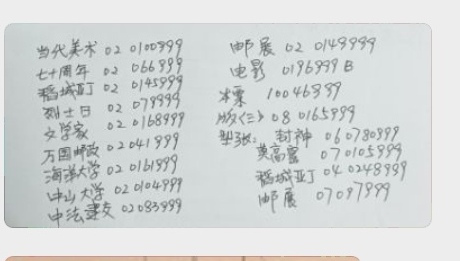 当代美术 02 0100999
七十周年 02 066999
稻城亚丁 02 0145999
烈士日 02 079999
文学家 02 0168999
万国邮政 02 041999
海洋大学 02 0161999
中山大学 02 0104999
中法建交 02 083999
邮展 02 0149999
电影 0196999 B
冰票 10046899
版(三) 08 0165999
型张: 封神 06 0780999
莫高窟 07 0105999
稻城亚丁 04 0248999
邮展 07 097999